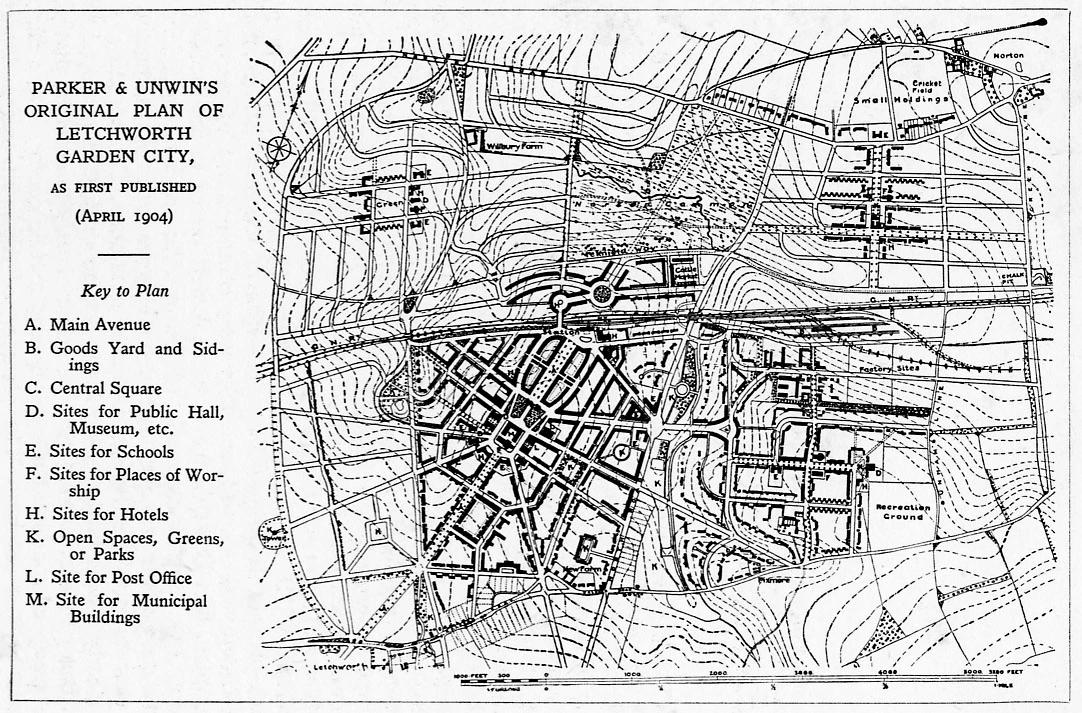 PARKER & UNWIN'S
ORIGINAL PLAN OF
LETCHWORTH
GARDEN CITY,
AS FIRST PUBLISHED
(APRIL 1904)
Key to Plan
A. Main Avenue
B. Goods Yard and Sid-
ings
C. Central Square
D. Sites for Public Hall,
Museum, etc.
E. Sites for Schools
F. Sites for Places of Wor-
ship
H. Sites for Hotels
K. Open Spaces, Greens,
or Parks
L. Site for Post Office
M. Site for Municipal
Buildings
Norton
Cricket
Field
Small Holdings
Wilbury Farm
Green
Norton Common
Cattle
Market
CHALK
PIT
G. N. RY.
G. N. RY.
Station
Factory Sites
Recreation
Ground
New Farm
Pixmore
Letchworth
K
K
K
1000 FEET 500 0 1000 2000 3000 5000 5280 FEET
1 MILE